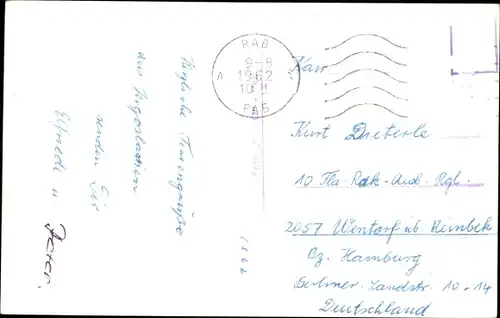 Herzliche Feriengrüße
aus Jugoslawien
senden Dir
Elfriede u.
Peter.
1862
RAB
9-8
A 1962
10 H
РАБ
Kurt Dieterle
10 Fla-Rak-Aus.
2057 Wentorf üb. Reinbek
Bz. Hamburg
Berliner-Landstr. 10-14
Deutschland